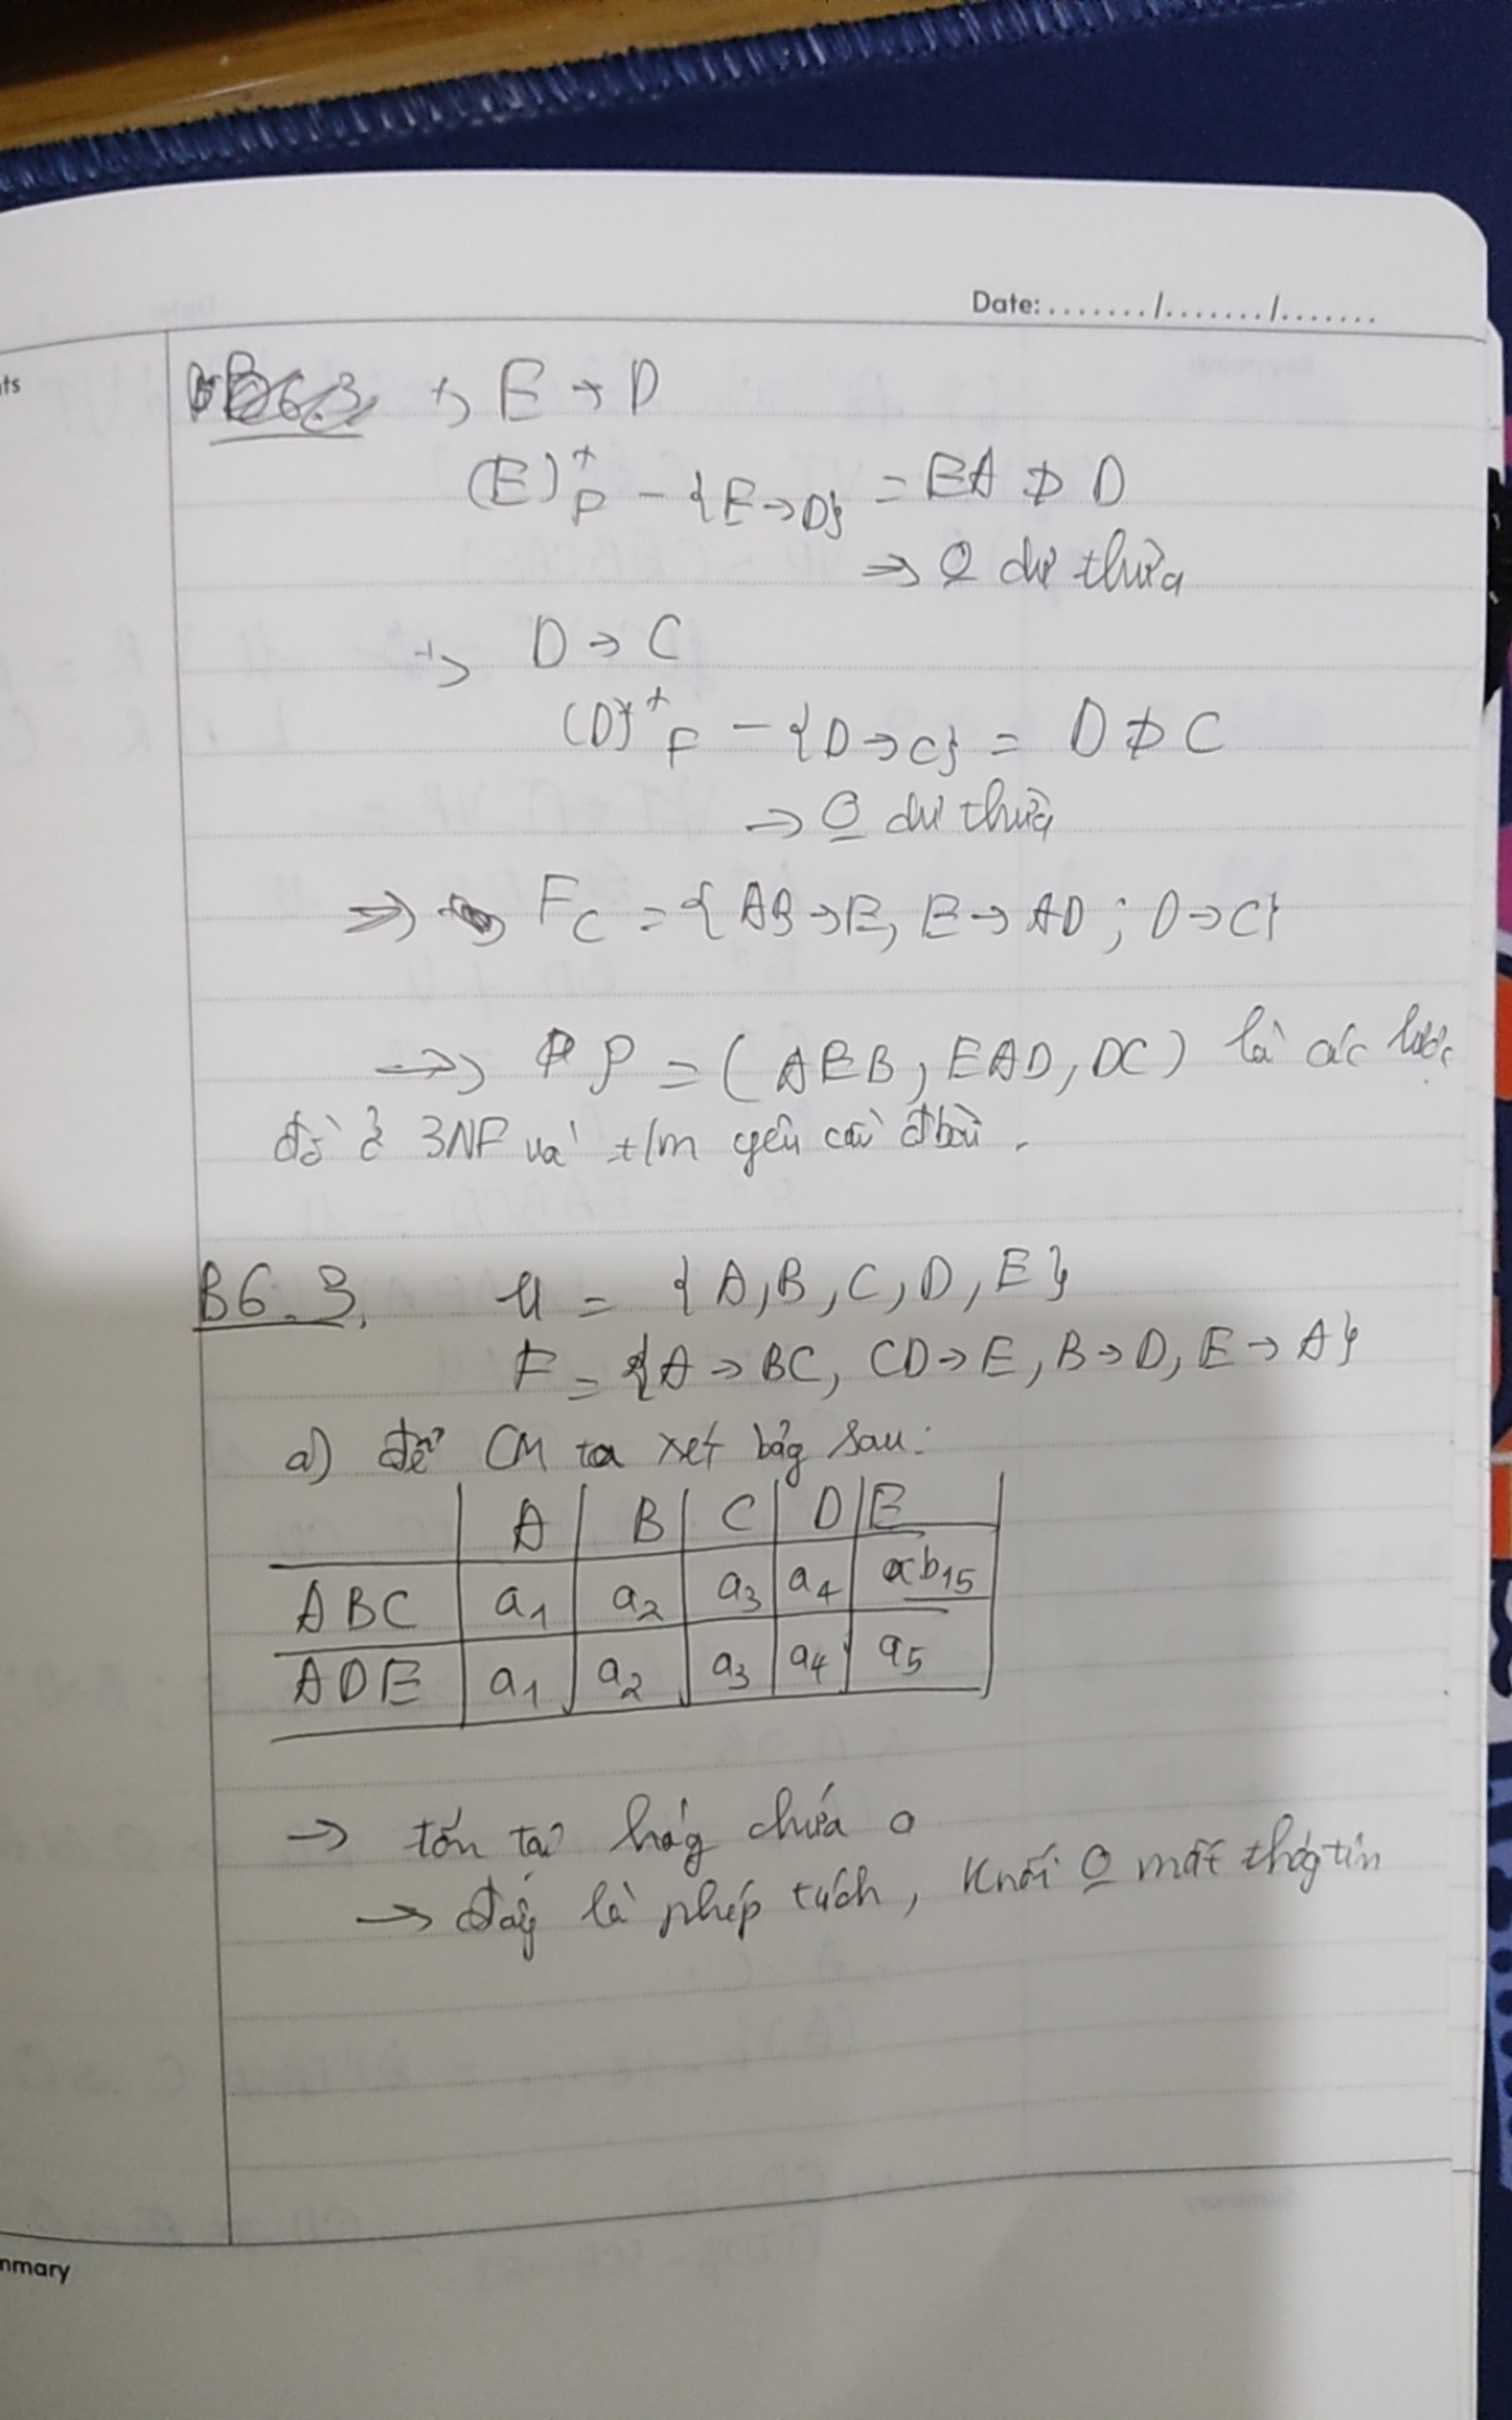 Date: ......../......../........
nts
+, E → D
(E)⁺F - {E→D} = EA ⊅ D
⇒ O dư thừa
+, D → C
(D)⁺F - {D→C} = D ⊅ C
⇒ O dư thừa
⇒ FC = {AB→E, E→AD; D→C}
⇒ ρ = (AEB, EAD, DC) là các lược
đồ ở 3NF và t/m yêu cầu đbài.
B6.3. U = {A,B,C,D,E}
F = {A→BC, CD→E, B→D, E→A}
a) để CM ta xét bảg sau:
A B C D E
ABC a1 a2 a3 a4 b15
ADE a1 a2 a3 a4 a5
→ tồn tại hàg chứa a
→ đây là phép tách, Knối O mất thôgtin
mmary